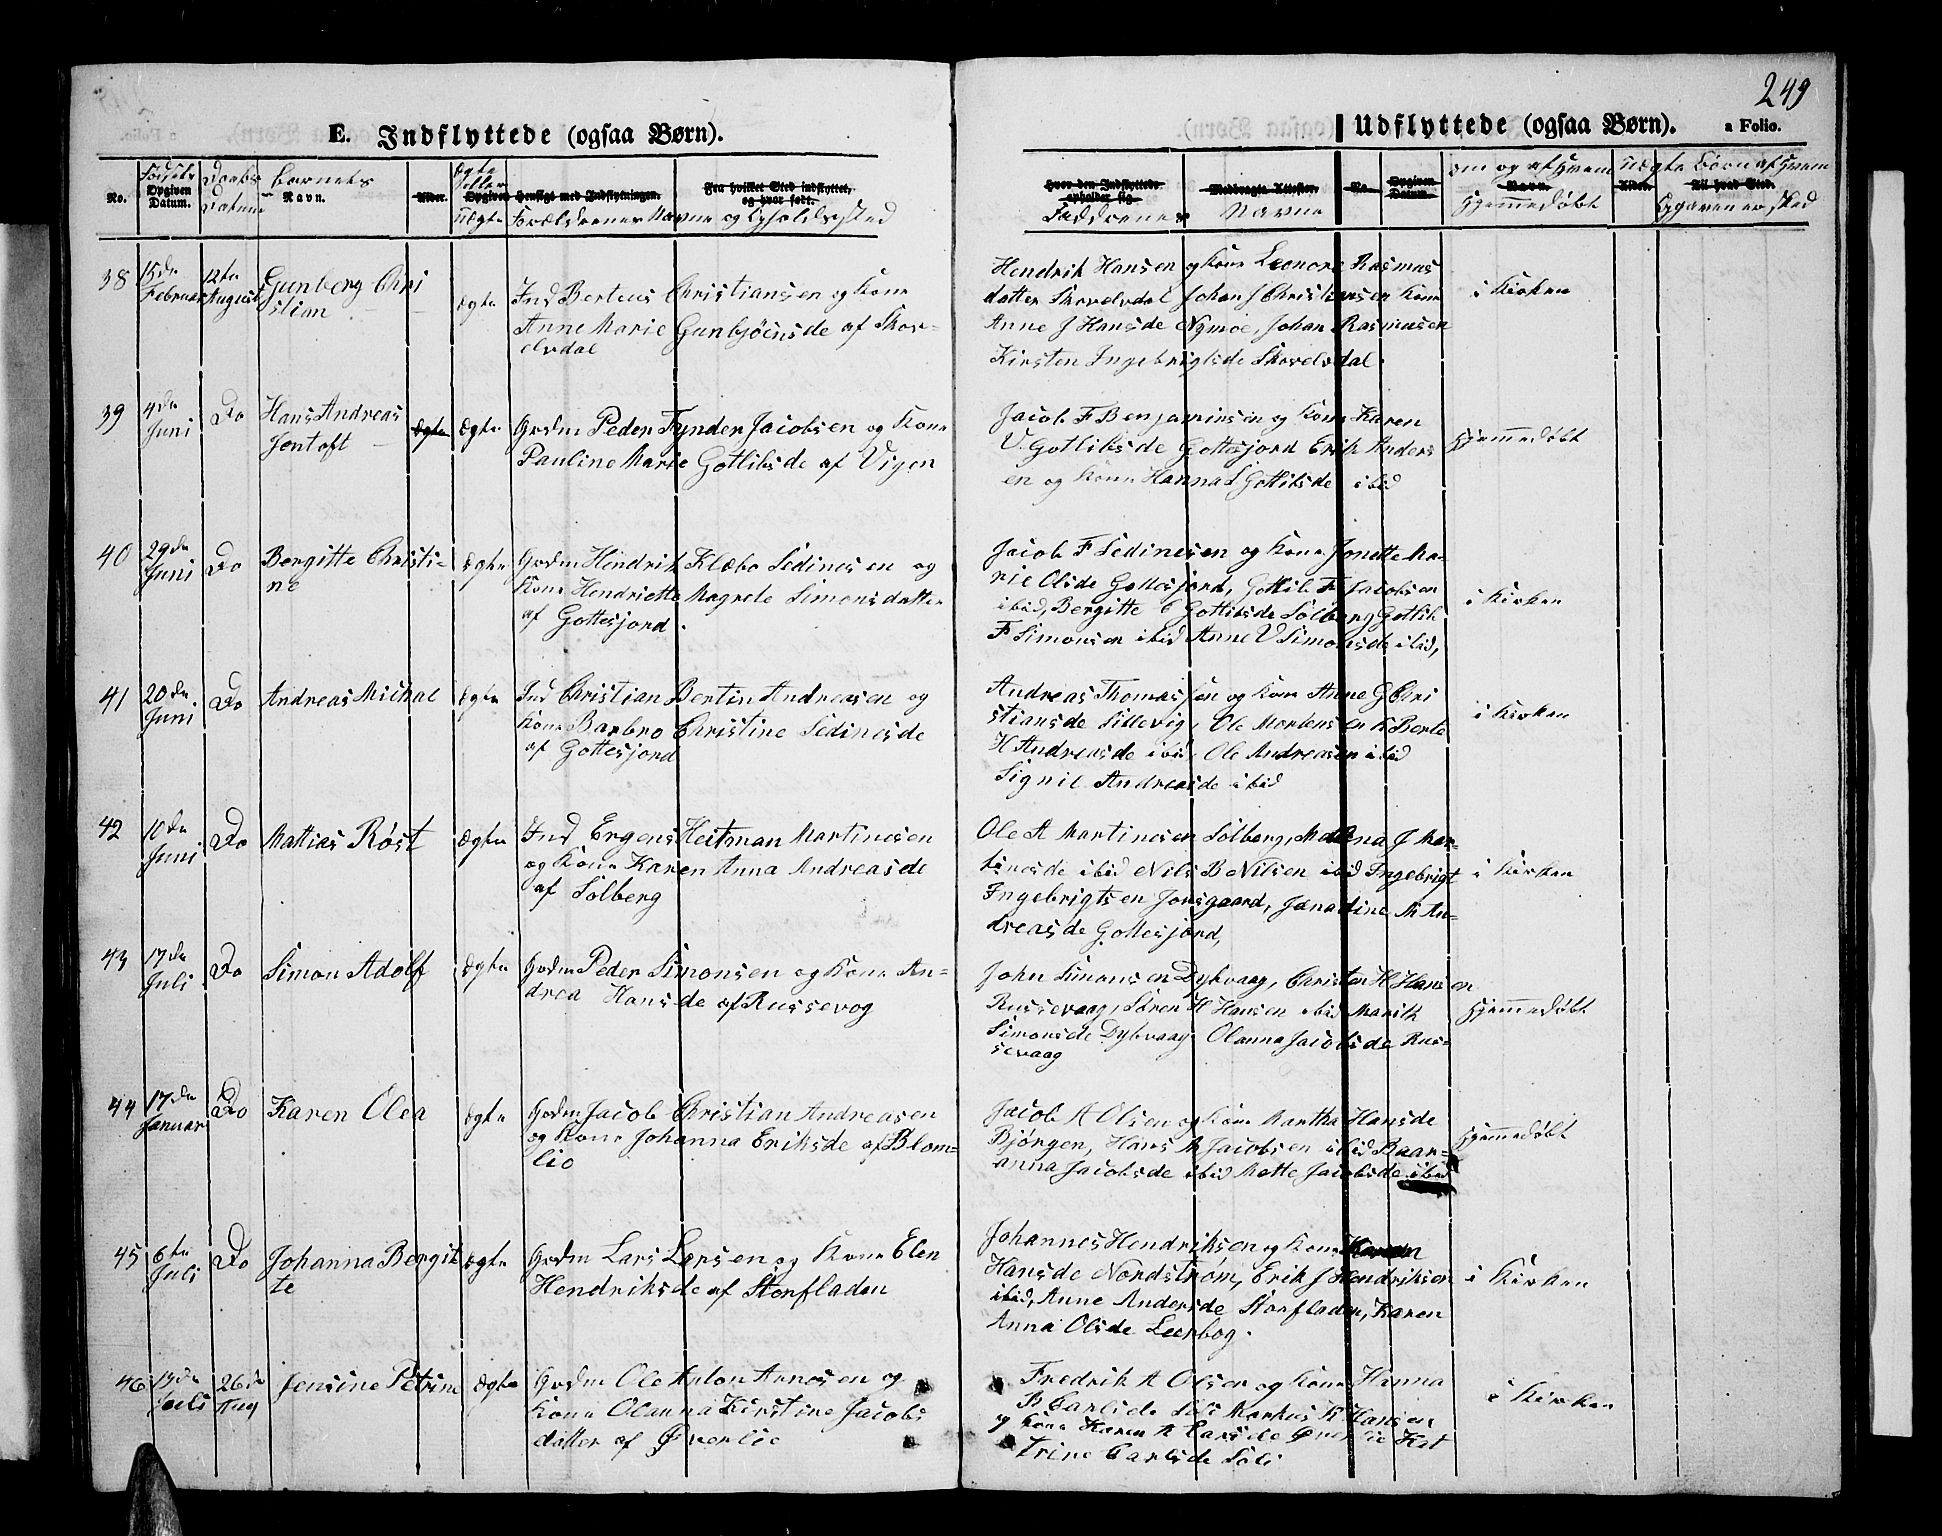 249
E. Indflyttede (ogsaa Børn).
Udflyttede (ogsaa Børn).
a Folio.
No.
Opgiven Datum.
Daabs Datum
Barnets
Navn.
Alder.
Ægte eller Uægte
Opgiven
Hensigt med Indflytningen.
Fra hvilket Sted indflyttet, og hvor født.
Forældrenes Navne og Opholdssted
Hvor den Indflyttede opholder sig.
Faddernes
Medbragte Attester.
Navne
No.
Opgiven Datum.
om og af Hvem
Navn.
Hjemmedøbt
Alder.
Til hvad Sted.
38
15de Februar
12te August
Gunberg Chri
stian
Ægte
Ind Berteus Christiansen og Kone
Anne Marie Gunbjöensde af Skov-
elvdal
Hendrik Hansen og Kone Leonore Rasmus
datter Skovelvdal Johan J Christiansen Kone
Anne J Hansde Nymoe, Johan Rasmusen
Kirsten Ingebrigtsde Skovelvdal.
i Kirken
39
4de Juni
Do
Hans Andreas
Jentoft
Ægte
Ægte
Grdm Peder Fynder Jacobsen og Kone
Pauline Marie Gotlibsde af Vigen
Jacob F Benjaminsen og Kone Karen
V. Gotlibsde Gottesjord Erik Anders
en og Kone Hanna S Gottibsde ibid
Hjemmedøbt
40
29de Juni
Do
Bergitte Christi-
ne
Ægte
Grdm Hendrik Klæbo Sedinesen og
Kone Hendriette Magrete Simonsdatter
af Gottesjord.
Jacob F Sedinesen og Kone Jonette Ma-
rie Olsde Gottesjord, Gottlib F Jacobsen
ibid, Bergitte Gottibsde Solberg Gotlib
F Simonsen ibid Anne V Simonsde ibid,
i Kirken
41
20de Juni
Do
Andreas Michal
Ægte
Ind Christian Bertin Andreasen og
Kone Barbro Christine Sedinesde
af Gottesjord
Andreas Thomassen og Kone Anne G Chri
stiansde Sillevig, Ole Mortensen K Berte
H Andreasde ibid Ole Andreasen ibid
Signil Andreasde ibid
i Kirken
42
10de Juni
Do
Matias Röst
Ægte
Ind Ergens Heitman Martinesen
og Kone Karen Anna Andreasde
af Solberg
Ole A Martinesen Solberg, Malena J Mar-
tinesde ibid Nils B Nilsen ibid Ingebrigt
Ingebrigtsen Jonsgaard, Jenadine M An-
dreasde Gottesjord,
i Kirken
43
17de Juli
Do
Simon Adolf
Ægte
Grdm Peder Simonsen og Kone An-
drea Hansde af Russevog
John Simonsen Dybvaag, Christen H Hansen
Russevaag, Sören H Hansen ibid Marith
Simonsde Dybvaag Olanna Jacobsde Rus-
sevaag
Hjemmedøbt
44
17de Januar
Do
Karen Olea
Ægte
Grdm Jacob Christian Andreasen
og Kone Johanna Eriksde af Blom-
lio
Jacob A Olsen og Kone Martha Hansde
Bjørgen, Hans A Jacobsen ibid Baar-
anna Jacobsde ibid Mette Jacobsde ibid
Hjemmedøbt
45
6te Juli
Do
Johanna Bergit
te
Ægte
Grdm Lars Larsen og Kone Elen
Hendriksde af Storfladen
Johannes Hendriksen og Kone Karen
Hansde Nordstrøm, Erik J Hendriksen
ibid, Anne Andersde Storfladen, Karen
Anna Olsde Leerbog.
i Kirken
46
19de Juli
26de Aug
Jensine Petrine
Ægte
Grdm Ole Anton Arnesen og
Kone Olanna Kirstine Jacobs
datter af Øverlie
Fredrik A Olsen og Kone Hanna
B Carlsde Soli Markus K Hansen
og Kone Karen A Larsde Øverlie Kat
trine Carlsde Soli
i Kirken